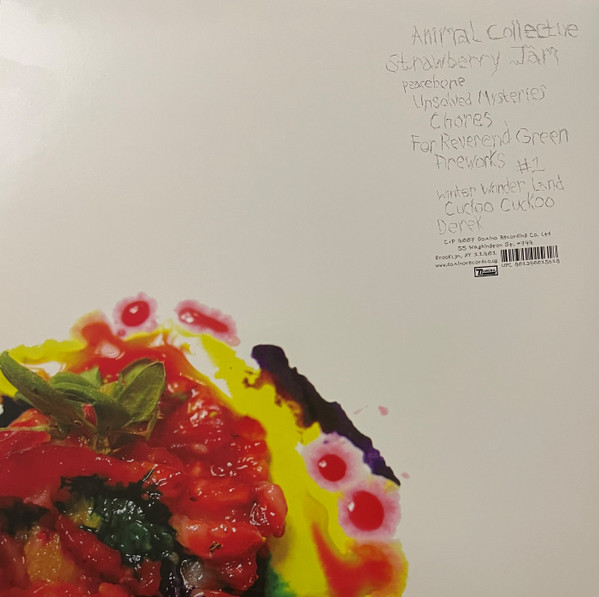 Animal Collective
Strawberry Jam
Peacebone
Unsolved Mysteries
Chores
For Reverend Green
Fireworks
#1
Winter Wonder Land
Cuckoo Cuckoo
Derek
C+P 2007 Domino Recording Co. Ltd
55 Washington St.
Brooklyn, NY 11201
UPC